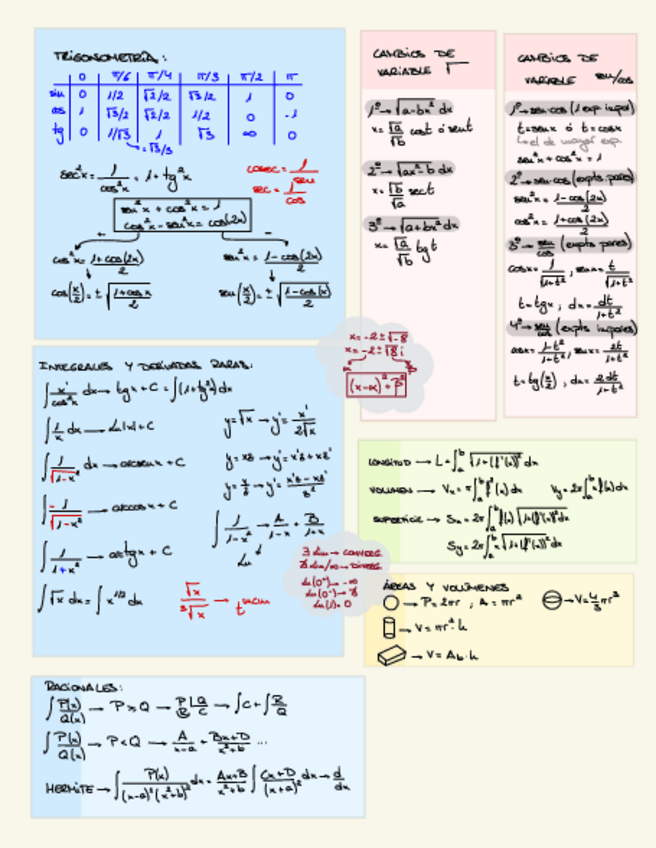 TRIGONOMETRÍA:
0 π/6 π/4 π/3 π/2 π
sin 0 1/2 √2/2 √3/2 1 0
cos 1 √3/2 √2/2 1/2 0 -1
tg 0 1/√3 1 √3 ∞ 0
=√3/3
sec²x = 1/cos²x = 1+tg²x
cosec = 1/sen
sec = 1/cos
sen²x + cos²x = 1
cos²x - sen²x = cos(2x)
+ -
cos²x = (1+cos(2x))/2
sen²x = (1-cos(2x))/2
cos(x/2) = ± √((1+cos x)/2)
sen(x/2) = ± √((1-cos(x))/2)
CAMBIOS DE
VARIABLE √
1º → √(a-bx²) dx
x = √a/√b cost ó sent
2º → √(ax²-b) dx
x = √b/√a sect
3º → √(a+bx²) dx
x = √a/√b tgt
CAMBIOS DE
VARIABLE sen/cos
1º → sen·cos (1 exp impar)
t = senx ó t = cosx
↳ el de mayor exp.
sen²x + cos²x = 1
2º → sen·cos (expts pares)
sen²x = (1-cos(2x))/2
cos²x = (1+cos(2x))/2
3º → sen/cos (expts pares)
cosx = 1/√(1+t²) ; senx = t/√(1+t²)
t = tgx ; dx = dt/(1+t²)
4º → sen/cos (expts impares)
cosx = (1-t²)/(1+t²) ; senx = 2t/(1+t²)
t = tg(x/2) ; dx = 2dt/(1+t²)
x = -2 ± √-8
x = -2 ± √8 i
(x-α)² + β²
INTEGRALES Y DERIVADAS RARAS:
∫ x'/cos²x dx → tgx + C = ∫(1+tg²) dx
∫ 1/x dx → Ln|x| + C
∫ 1/√(1-x²) dx → arcsenx + C
∫ -1/√(1-x²) → arccosx + C
∫ 1/(1+x²) → arctgx + C
∫ √x dx = ∫ x^(1/2) dx
y = √x → y' = x'/(2√x)
y = xz → y' = x'z + xz'
y = x/z → y' = (x'z - xz')/z²
∫ 1/(1-x²) → A/(1-x) + B/(1+x)
Ln
√x/³√x → t^mcm
∃ Lim → CONVERG.
∄ Lim/∞ → DIVERG.
Ln(0⁺) → -∞
Ln(0⁻) → ∄
Ln(1) = 0
LONGITUD → L = ∫ₐᵇ √(1+(f'(x))²) dx
VOLUMEN → Vx = π∫ₐᵇ f²(x) dx Vy = 2π∫ₐᵇ x f(x) dx
SUPERFICIE → Sx = 2π∫ₐᵇ f(x) √(1+(f'(x))²) dx
Sy = 2π∫ₐᵇ x √(1+(f'(x))²) dx
ÁREAS Y VOLÚMENES
→ P = 2πr ; A = πr²
→ V = 4/3 πr³
→ V = πr²·h
→ V = Ab·h
RACIONALES:
∫ P(x)/Q(x) → P ≥ Q → P|Q R C → ∫C + ∫R/Q
∫ P(x)/Q(x) → P < Q → A/(x-a) + (Bx+D)/(x²+b) ...
HERMITE → ∫ P(x)/((x-a)²(x²+b)²) dx = (Ax+B)/(x²+b) ∫ (Cx+D)/(x+a)² dx → d/dx